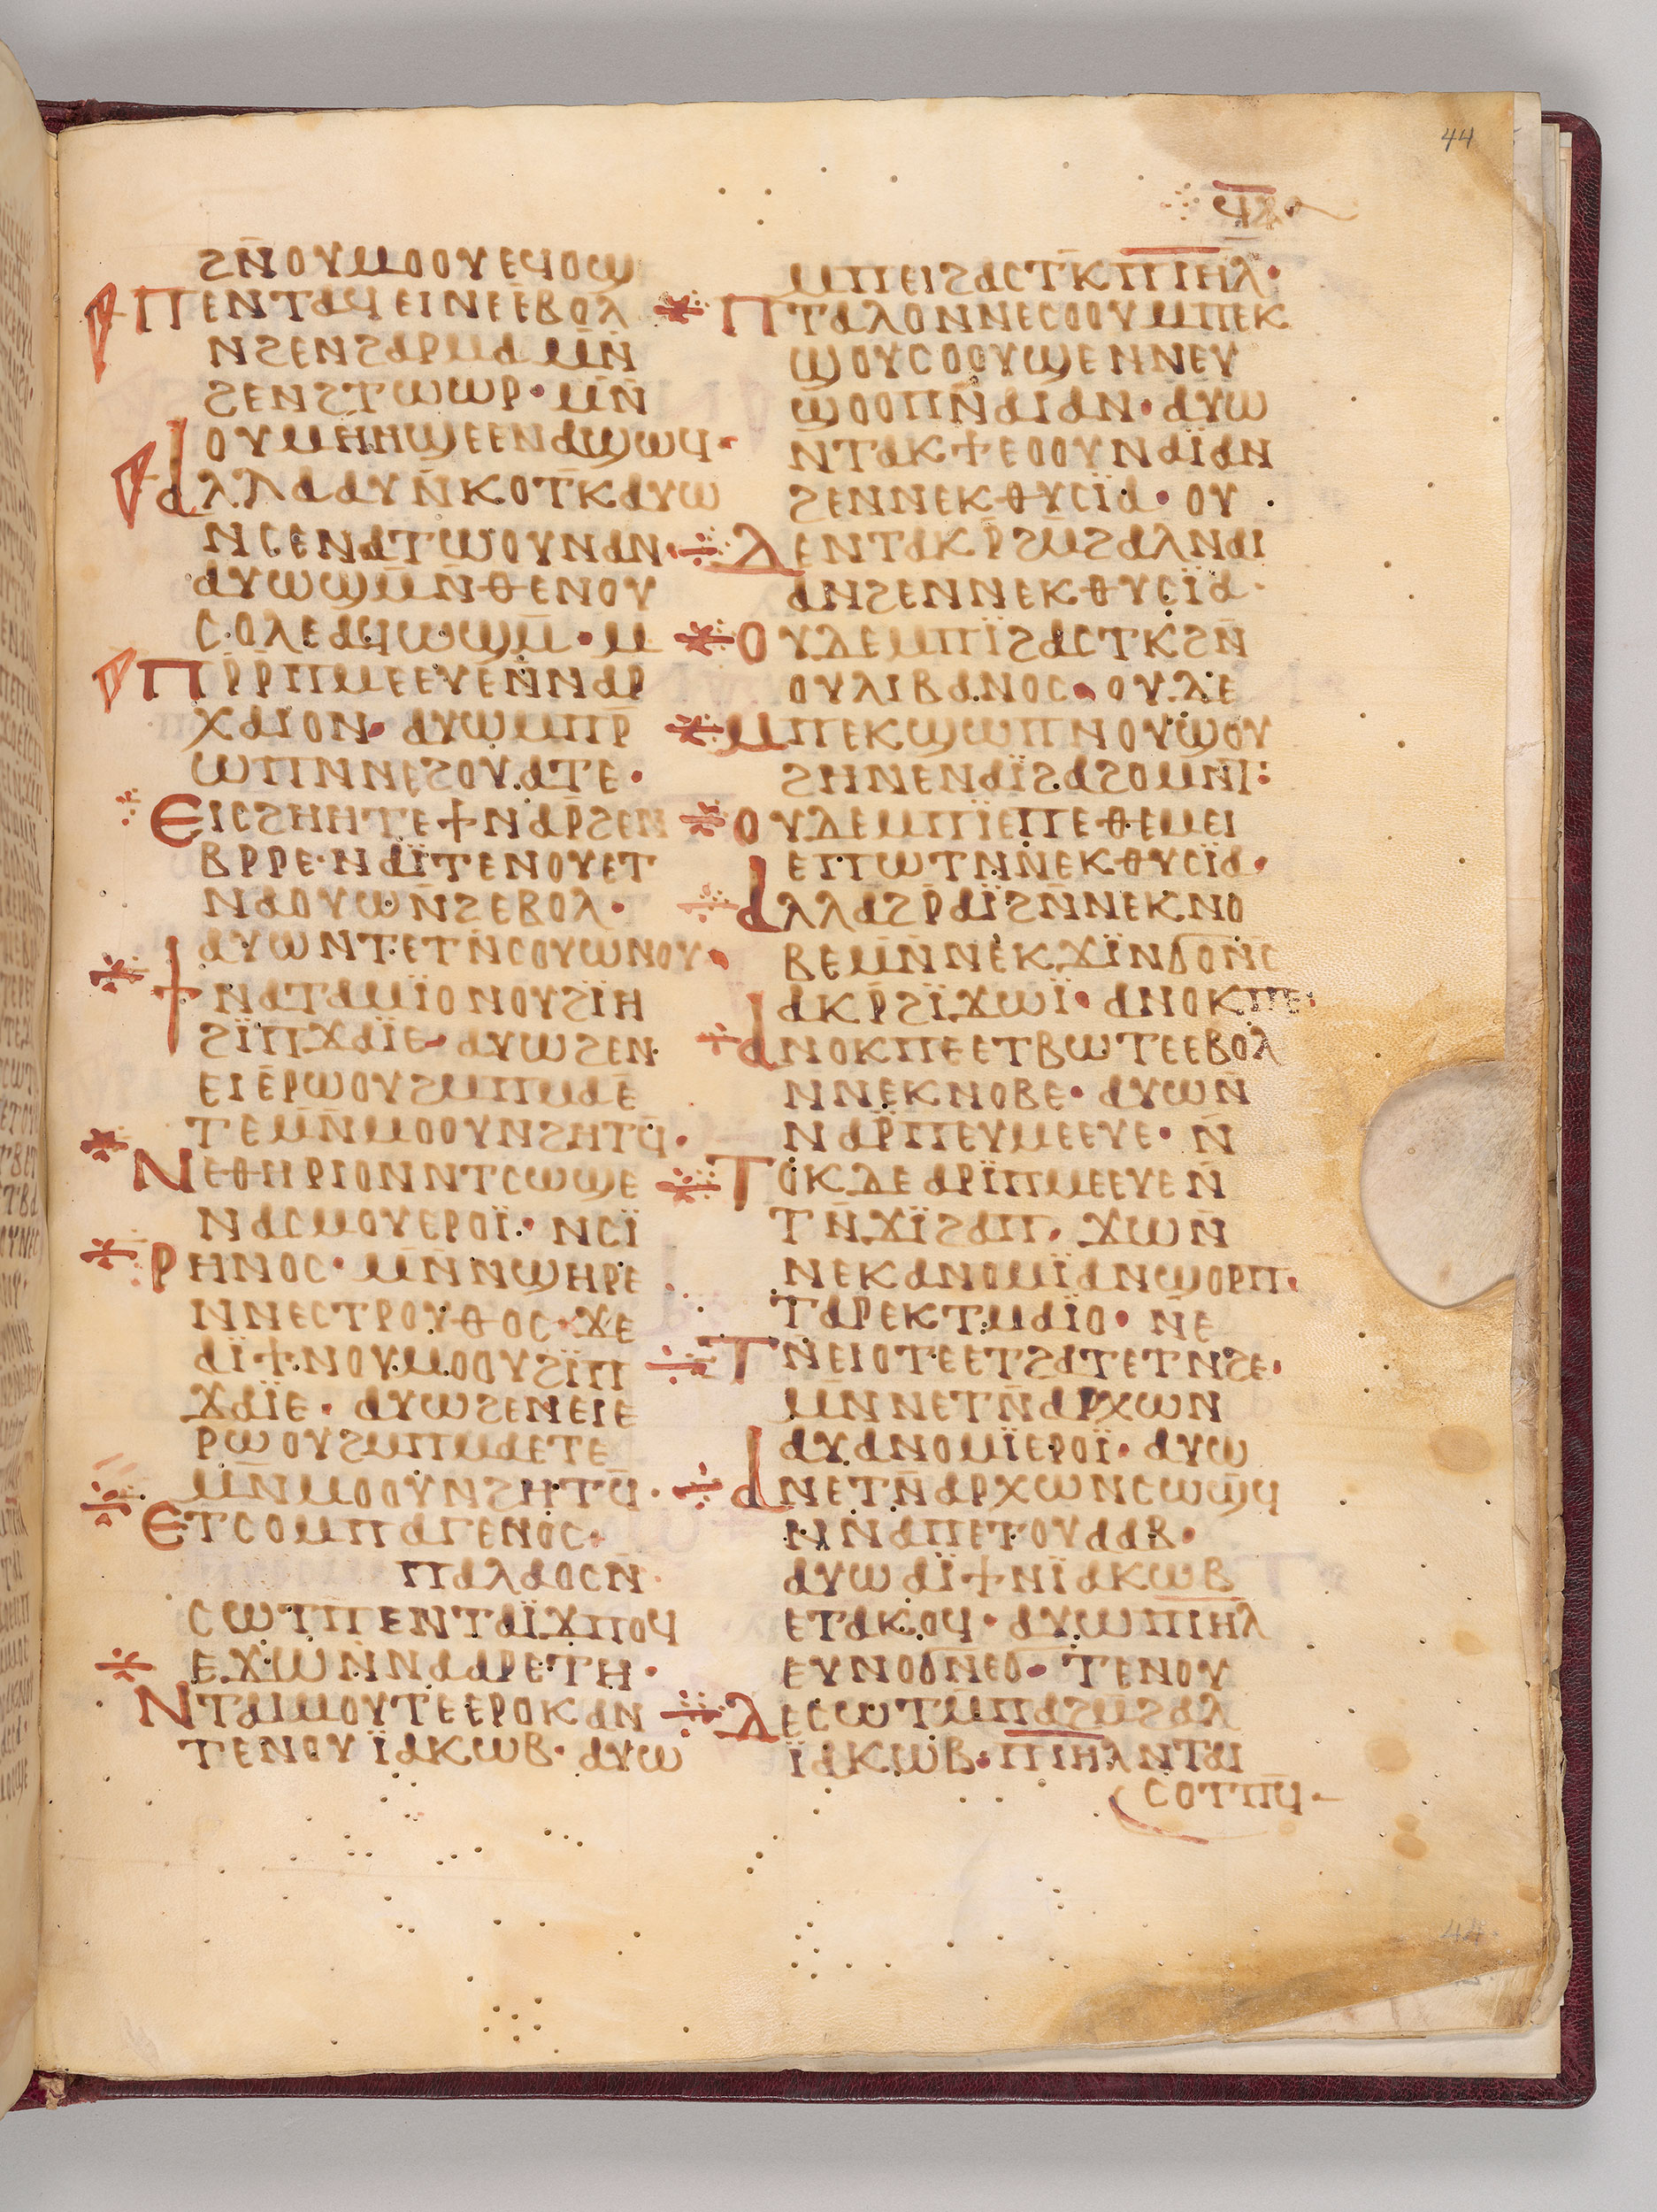 44
ϩⲛ̄ⲟⲩⲙⲟⲟⲩⲉϥⲟϣ
ⲡⲉⲛⲧⲁϥⲉⲓⲛⲉⲉ̄ⲃⲟⲗ
ⲛϩⲉⲛϩⲁⲣⲙⲁⲙⲛ̄
ϩⲉⲛϩⲧⲱⲱⲣ· ⲙⲛ̄
ⲟⲩⲙⲏⲏϣⲉⲉⲛⲁϣⲱϥ·
ⲁⲗⲗⲁⲁⲩⲛ̄ⲕⲟⲧⲕ̄ⲁⲩⲱ
ⲛⲥⲉⲛⲁⲧⲱⲟⲩⲛⲁⲛ·
ⲁⲩⲱϣⲙ̄ⲛ̄ⲑⲉⲛⲟⲩ
ⲥⲟⲗⲉⲁϥⲱϣⲙ̄· ⲙ
ⲡⲣ̄ⲣ̄ⲡⲙⲉⲉⲩⲉⲛ̄ⲛⲁⲣ
ⲭⲁⲓⲟⲛ· ⲁⲩⲱⲙⲡⲣ̄
ⲱⲡⲛⲛⲉϩⲟⲩⲁⲧⲉ·
ⲉⲓⲥϩⲏⲏⲧⲉϯⲛⲁⲣ̄ϩⲉⲛ
ⲃⲣⲣⲉ·ⲛⲁⲓ̈ⲧⲉⲛⲟⲩⲉⲧ
ⲛⲁⲟⲩⲱⲛ̄ϩⲉⲃⲟⲗ·
ⲁⲩⲱⲛⲧⲉⲧⲛ̄ⲥⲟⲩⲱⲛⲟⲩ·
ϯⲛⲁⲧⲁⲙⲓ̈ⲟⲛⲟⲩϩⲓ̈ⲏ
ϩⲓ̈ⲡϫⲁⲓ̈ⲉ· ⲁⲩⲱϩⲉⲛ
ⲉⲓⲉ̄ⲣⲱⲟⲩϩⲙⲡⲙⲁⲉ̄
ⲧⲉⲙⲛ̄ⲙⲟⲟⲩⲛϩⲏⲧϥ̄·
ⲛⲉⲑⲏⲣⲓⲟⲛⲛⲧⲥⲱϣⲉ
ⲛⲁⲥⲙⲟⲩⲉⲣⲟⲓ̈· ⲛⲥⲓ̈
ⲣⲏⲛⲟⲥ· ⲙⲛ̄ⲛϣⲏⲣⲉ
ⲛⲛⲉⲥⲧⲣⲟⲩⲑⲟⲥ·ϫⲉ
ⲁⲓ̈ϯⲛⲟⲩⲙⲟⲟⲩϩⲓ̈ⲡ
ϫⲁⲓ̈ⲉ· ⲁⲩⲱϩⲉⲛⲉⲓⲉ
ⲣⲱⲟⲩϩⲙⲡⲙⲁⲉⲧⲉ
ⲙⲛ̄ⲙⲟⲟⲩⲛϩⲏⲧϥ̄·
ⲉⲧⲥⲟⲙⲡⲁⲅⲉⲛⲟⲥ·
ⲡⲁⲗⲁⲟⲥⲛ̄
ⲥⲱⲧⲡⲉⲛⲧⲁⲓ̈ϫⲡⲟϥ
ⲉϫⲱⲛⲛⲁⲁⲣⲉⲧⲏ·
ⲛⲧⲁⲓⲙⲟⲩⲧⲉⲉⲣⲟⲕⲁⲛ
ⲧⲉⲛⲟⲩⲓ̈ⲁⲕⲱⲃ· ⲁⲩⲱ
ⲙⲡⲉⲓϩⲁⲥⲧⲕ̄ⲡⲓⲏⲗ·
ⲡⲧⲁⲗⲟⲛⲛⲉⲥⲟⲟⲩⲙⲡⲉⲕ
ϣⲟⲩⲥⲟⲟⲩϣⲉⲛⲛⲉⲩ
ϣⲟⲟⲡⲛ̄ⲁⲓⲁⲛ· ⲁⲩⲱ
ⲛⲧⲁⲕϯⲉⲟⲟⲩⲛⲁⲓ̈ⲁⲛ
ϩⲉⲛⲛⲉⲕⲑⲩⲥⲓ̈ⲁ· ⲟⲩ
ⲇⲉⲛⲧⲁⲕⲣ̄ϩⲙ̄ϩⲁⲗⲛⲁⲓ
ⲁⲛϩⲉⲛⲛⲉⲕⲑⲩⲥⲓ̈ⲁ·
ⲟⲩⲇⲉⲙⲡⲓ̈ϩⲁⲥⲧⲕϩⲛ̄
ⲟⲩⲗⲓⲃⲁⲛⲟⲥ· ⲟⲩⲇⲉ
ⲙⲡⲉⲕϣⲱⲡⲛⲟⲩϣⲟⲩ
ϩⲏⲛⲉⲛⲁⲓ̈ϩⲁϩⲟⲙⲛ̄ⲧ:
ⲟⲩⲇⲉⲙⲡⲓ̈ⲉⲡⲉⲑⲉⲙⲉⲓ
ⲉⲡⲱⲧⲛⲛⲉⲕⲑⲩⲥⲓ̈ⲁ·
ⲁⲗⲗⲁϩⲣⲁⲓ̈ϩⲛ̄ⲛⲉⲕⲛⲟ
ⲃⲉⲙⲛ̄ⲛⲉⲕϫⲓ̈ⲛϭⲟⲛⲥ
ⲁⲕⲣ̄ϩⲓ̈ϫⲱⲓ̈· ⲁⲛⲟⲕⲡⲉ·
ⲁⲛⲟⲕⲡⲉⲉⲧⲃⲱⲧⲉⲉⲃⲟⲗ
ⲛⲛⲉⲕⲛⲟⲃⲉ· ⲁⲩⲱⲛ̄
ⲛⲁⲣ̄ⲡⲉⲩⲙⲉⲉⲩⲉ· ⲛ̄
ⲧⲟⲕⲇⲉⲁⲣⲓ̈ⲡⲙⲉⲉⲩⲉⲛ̄
ⲧⲛ̄ϫⲓ̈ϩⲁⲡ· ϫⲱⲛ̄
ⲛⲉⲕⲁⲛⲟⲙⲓ̈ⲁⲛϣⲟⲣⲡ·
ⲧⲁⲣⲉⲕⲧⲙⲁⲓ̈ⲟ· ⲛ̄ⲉ
ⲧⲛ̄ⲉⲓⲟⲧⲉⲉⲧϩⲁⲧⲉⲧⲛϩⲉ·
ⲙⲛ̄ⲛⲉⲧⲛ̄ⲁⲣⲭⲱⲛ
ⲁⲩⲁⲛⲟⲙⲓ̈ⲉⲣⲟⲓ̈· ⲁⲩⲱ
ⲁⲛⲉⲧⲛ̄ⲁⲣⲭⲱⲛⲥⲱϣ̄ϥ
ⲛⲛⲁⲡⲉⲧⲟⲩⲁⲁⲃ·
ⲁⲩⲱⲁⲓ̈ϯⲛⲓ̈ⲁⲕⲱⲃ
ⲉⲧⲁⲕⲟϥ· ⲁⲩⲱⲡⲓⲏⲗ
ⲉⲩⲛⲟϭⲛⲉϭ· ⲧⲉⲛⲟⲩ
ⲇⲉⲥⲱⲧⲙ̄ⲡⲁϩⲙ̄ϩⲁⲗ
ⲓ̈ⲁⲕⲱⲃ·ⲡⲓⲏⲗⲛⲧⲁⲓ
ⲥⲟⲧⲡϥ̄
44